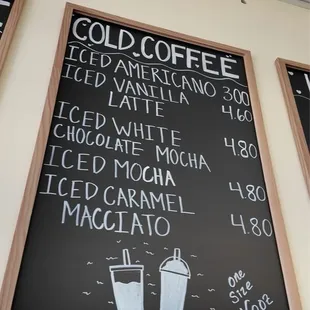 COLD.COFFEE
ICED AMERICANO 3.00
ICED VANILLA
LATTE 4.60
ICED WHITE
CHOCOLATE MOCHA 4.80
ICED MOCHA 4.80
ICED CARAMEL
MACCIATO 4.80
ONE
Size